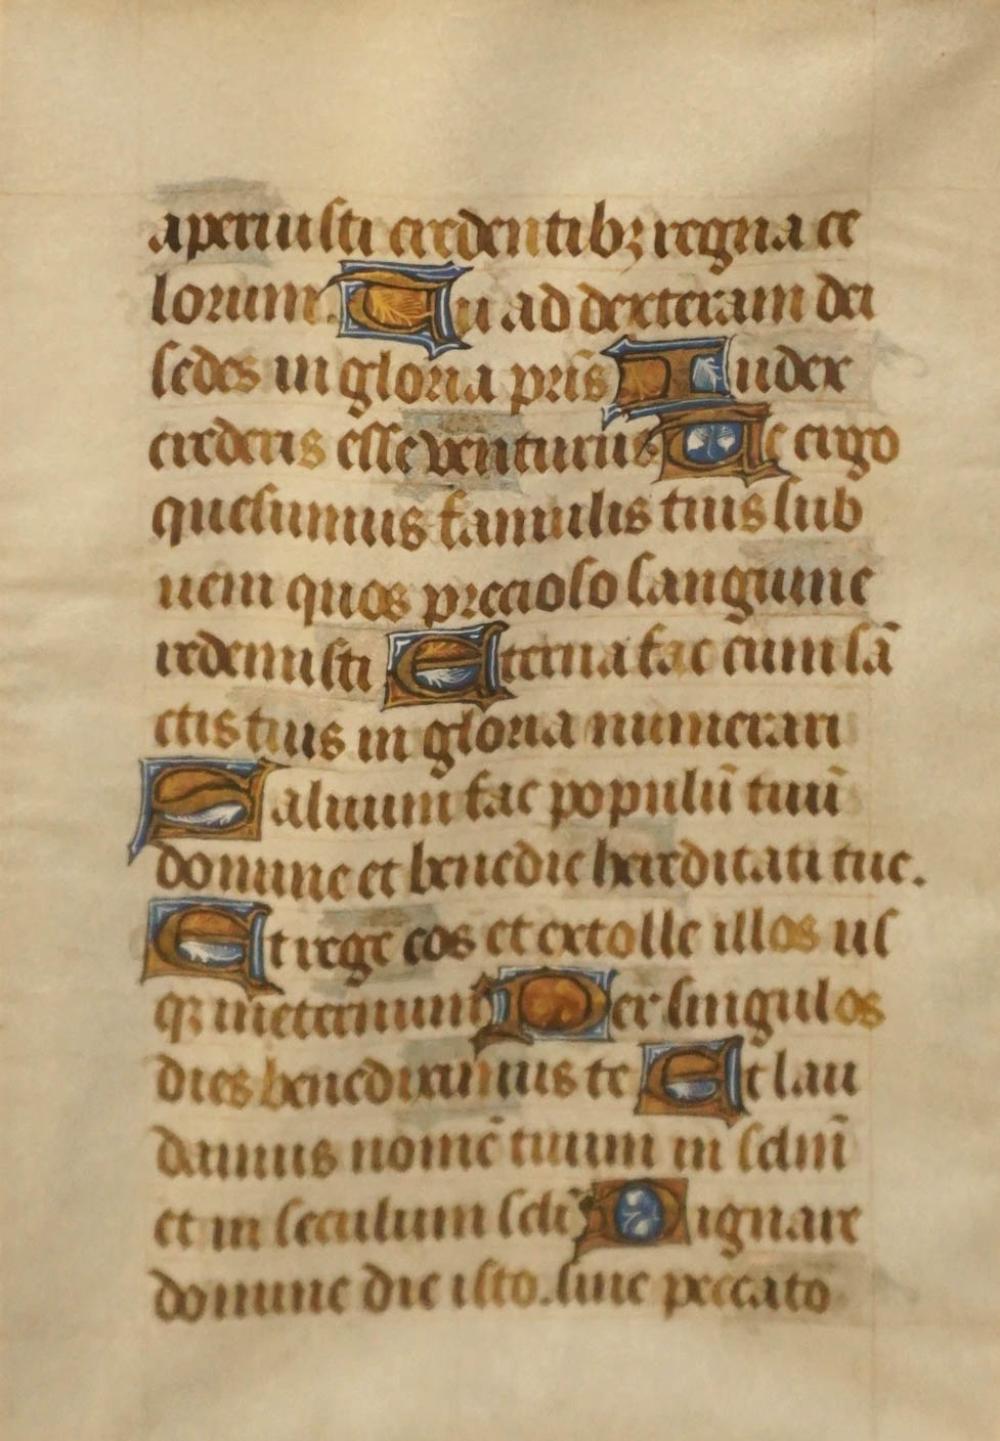 aperuisti credentibꝫ regna ce
lorum. Tu ad dexteram dei
sedes in gloria pris Iudex
crederis esse venturus Te ergo
quesumus famulis tuis sub
ueni quos precioso sanguine
redemisti Eterna fac cum sā
ctis tuis in gloria numerari
Saluum fac populū tuū
domine et benedic hereditati tue.
Et rege eos et extolle illos us
qꝫ ineternum Per singulos
dies benedicimus te Et lau
damus nomē tuum in sclm̄
et in seculum scli Dignare
domine die isto. sine peccato